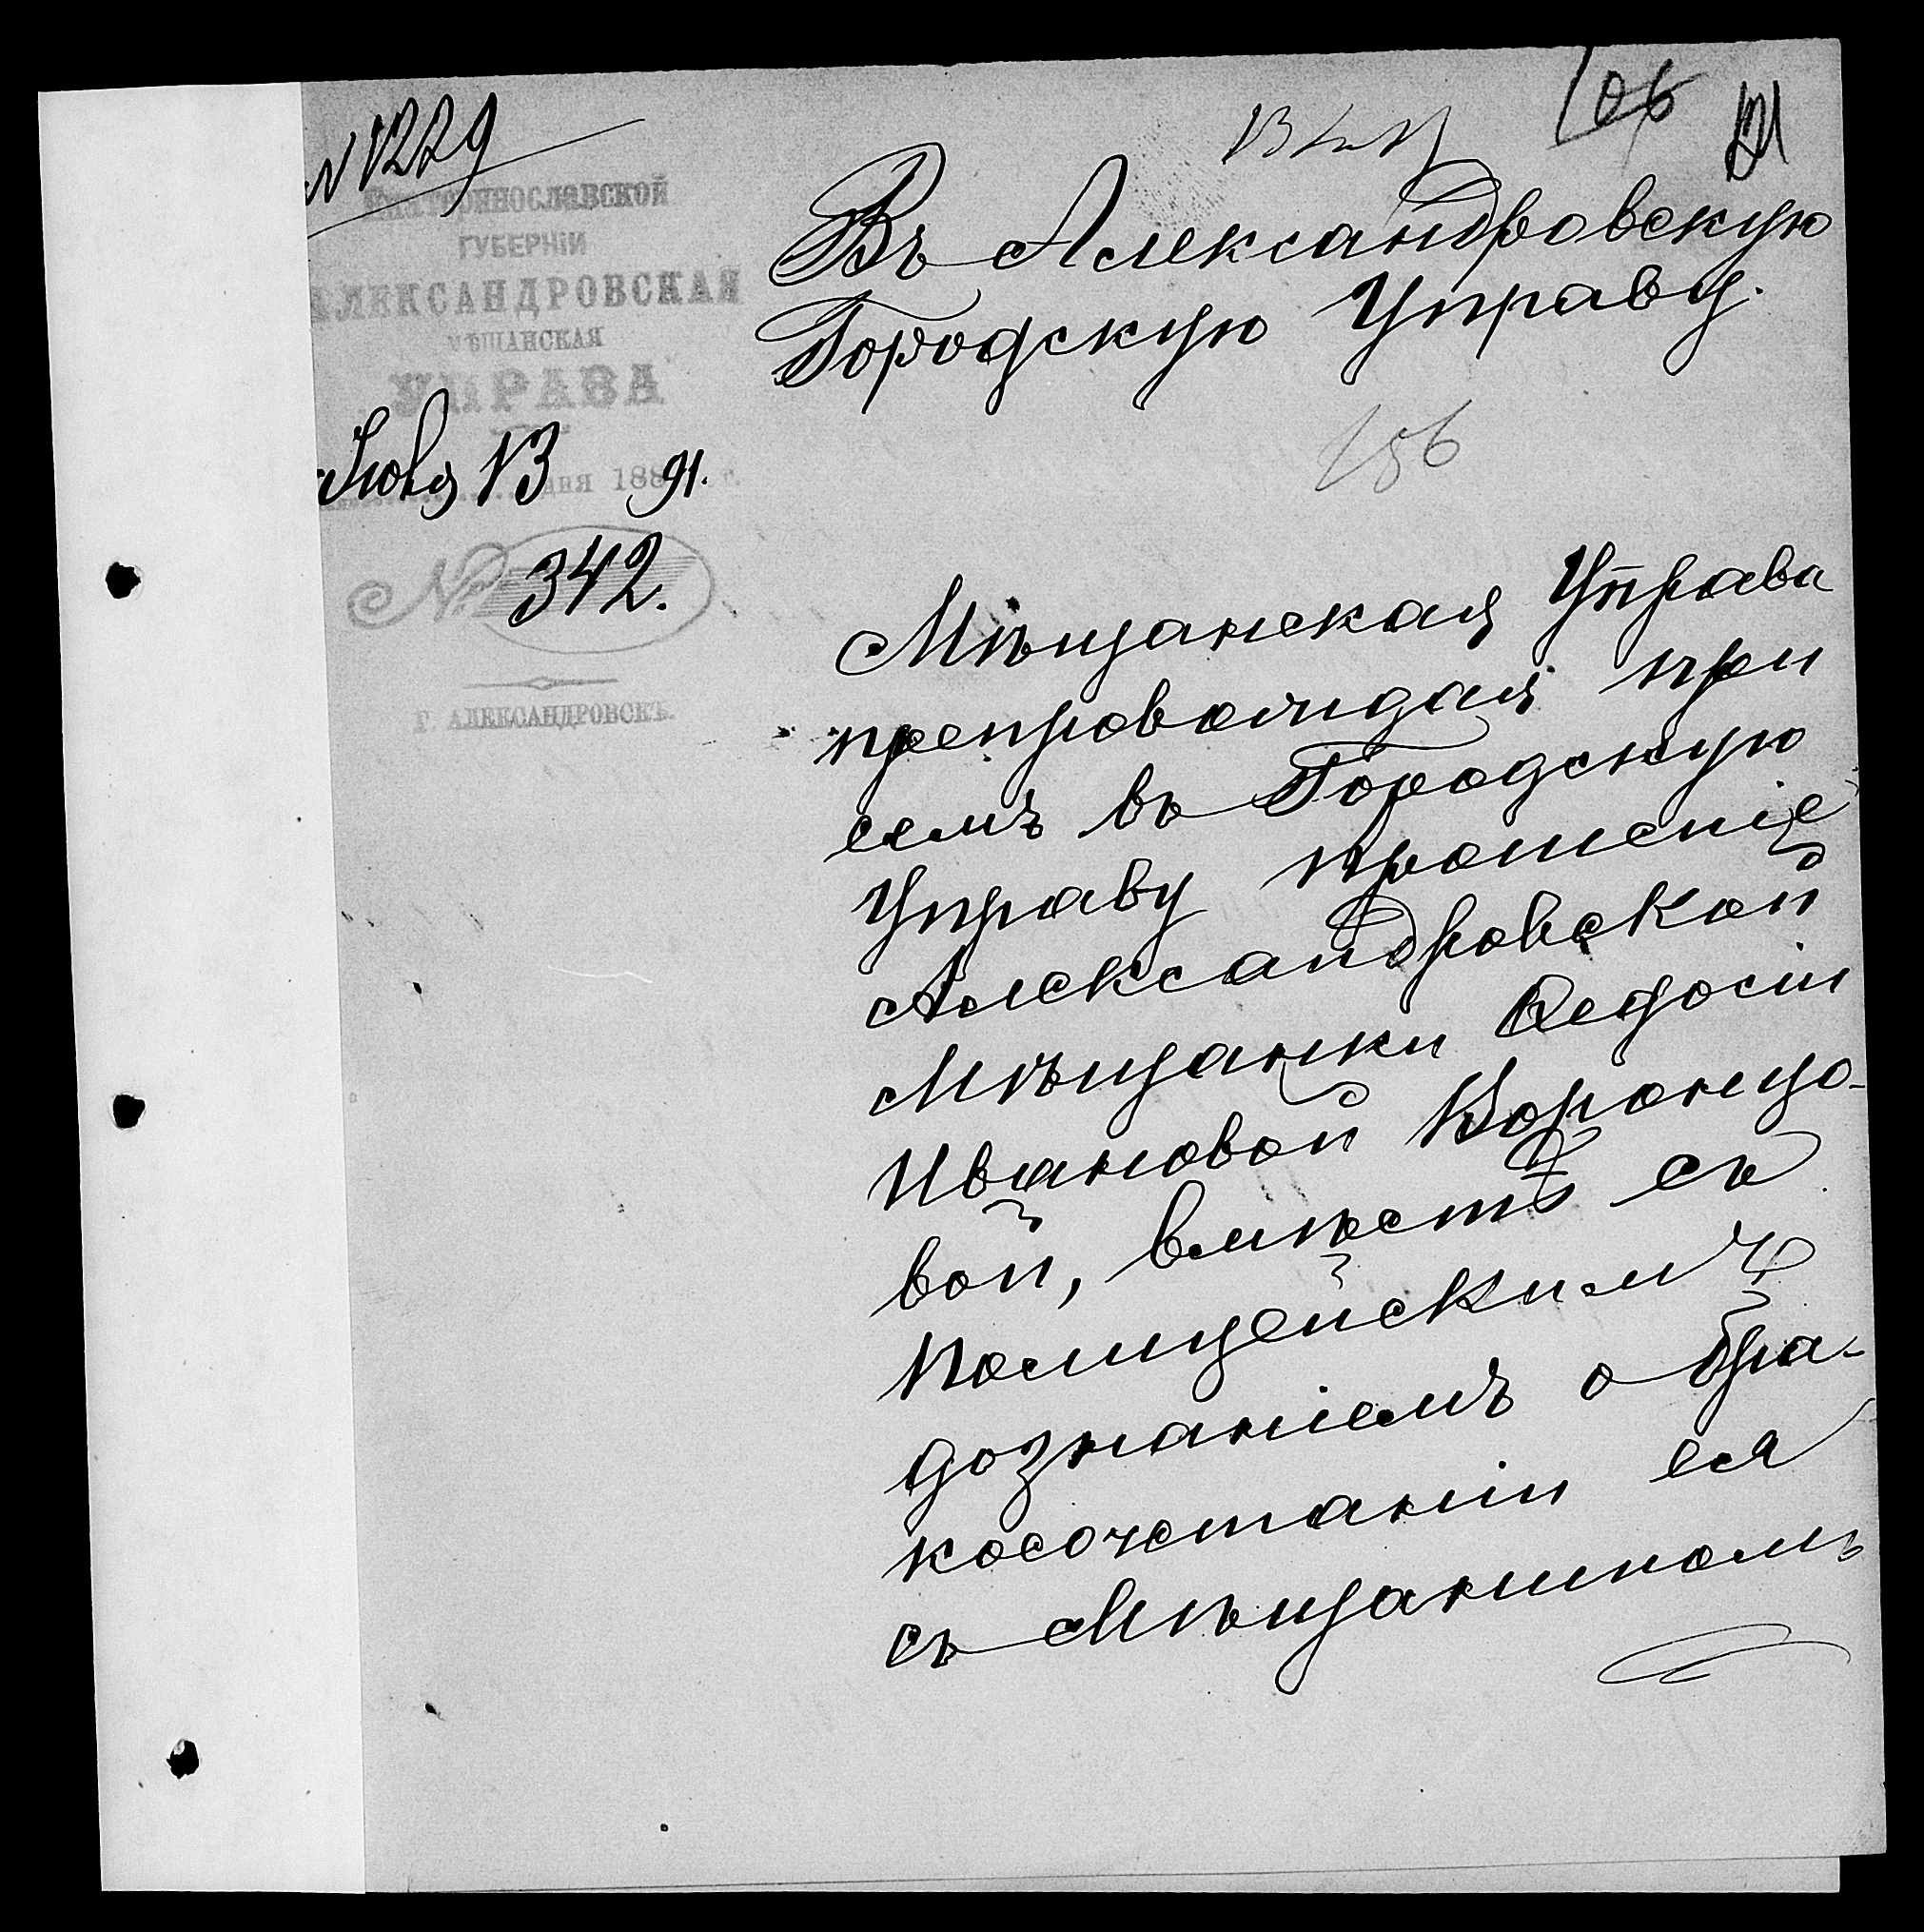 N 1229
106
121
Екатеринославской
ГУБЕРНІИ
АЛЕКСАНДРОВСКАЯ
МѢЩАНСКАЯ
УПРАВА
13 91.
дня 188 г.
№ 342.
Г. АЛЕКСАНДРОВСКЪ.
Въ Александровскую
Городскую Управу.
156
Мѣщанская Управа
препровождая при
семъ въ Городскую
Управу прошеніе
Александровской
Мѣщанки Ѳедосіи
Ивановой Воронцо-
вой, вмѣстѣ съ
Полицейскимъ
дознаніемъ о бра-
косочетаніи ея
съ Мѣщаниномъ